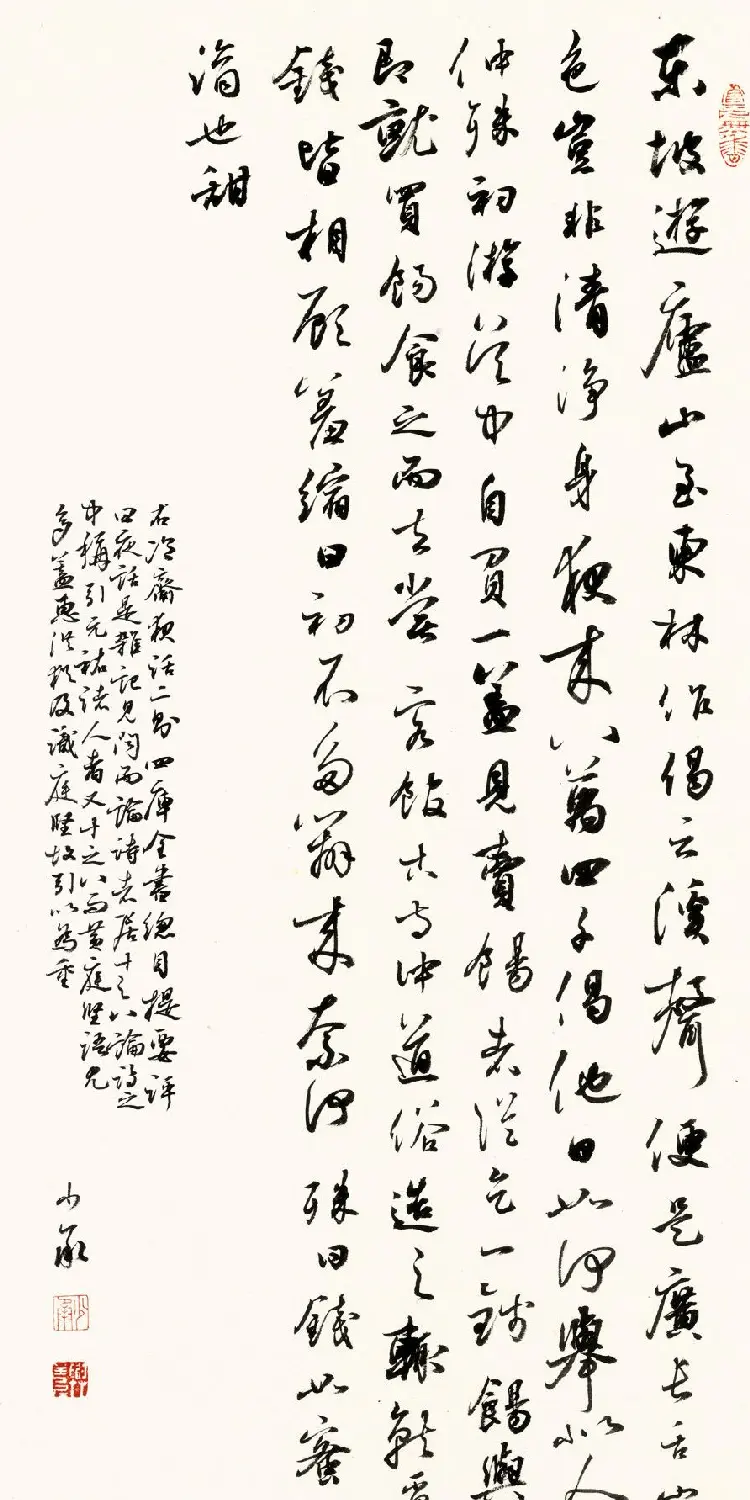 東坡遊廬山至東林作偈云溪聲便是廣長舌山
色豈非清淨身夜來八萬四千偈他日如何舉似人
仲殊初游吳中自負一蓋見賣餳者從乞一錢餳與
即就買餳食之而去嘗客館古寺中道俗造之輒就覓
錢皆相顧羞縮曰初不多辦來奈何殊曰錢如蜜
滴也甜
右冷齋夜話二則四庫全書總目提要評
曰夜話是雜記見聞而論詩者居十之八論詩之
中稱引元祐諸人者又十之八而黃庭堅語尤
多蓋惠洪猶及識庭堅故引以為重